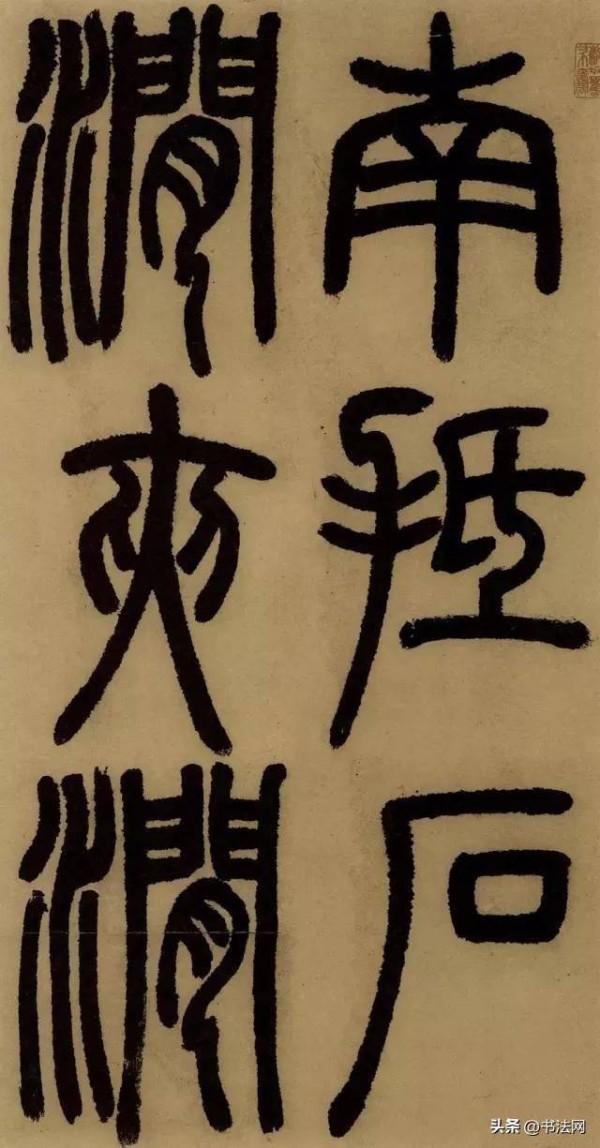 南抵石
澗夾澗
头条 @书法网